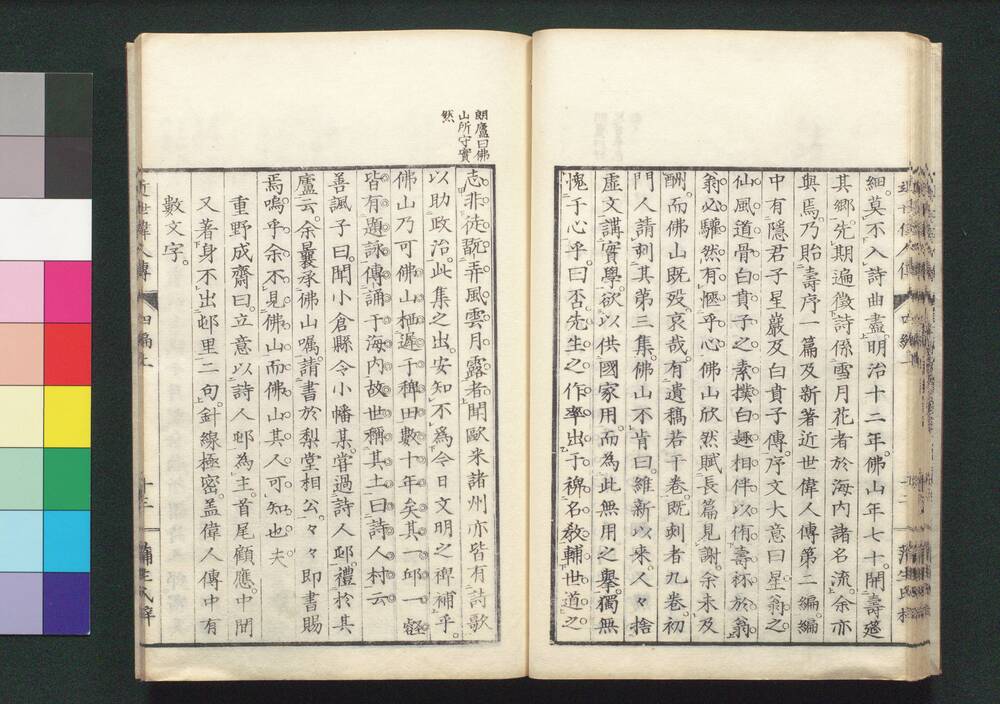 細莫不入詩曲盡明治十二年佛山年七十開壽筵
其郷先期遍徵詩係雪月花者於海内諸名流余亦
與焉乃貽壽序一篇及新著近世偉人傳第二編編
中有隱君子星巖及白賁子傳序文大意曰星翁之
仙風道骨白賁子之素撲白趣相伴以侑壽杯於翁
翁必驩然有愜乎心佛山欣然賦長篇見謝余未及
酬而佛山既歿哀哉有遺稿若干卷既刺者九卷初
門人請刺其第三集佛山不肯曰維新以來人々捨
虛文講實學欲以供國家用而為此無用之舉獨無
愧于心乎曰否先生之作率出于裨名敎輔世道之
朗廬曰佛
山所守實
然
志非徒翫弄風雲月露者聞歐米諸州亦皆有詩歌
以助政治此集之出安知不爲今日文明之裨補乎
佛山乃可佛山栖遲于稗田數十年矣其一邱一壑
皆有題詠傳誦于海内故世稱其土曰詩人村云
善諷子曰聞小倉縣令小幡某甞過詩人邨禮於其
廬云余曩承佛山囑請書於梨堂相公々々即書賜
焉嗚乎余不見佛山而佛山其人可知也夫
重野成齋曰立意以詩人邨為主首尾顧應中間
又著身不出邨里二句針線極密盖偉人傳中有
數文字
近世偉人傳 四編上 十三 蒲生氏梓